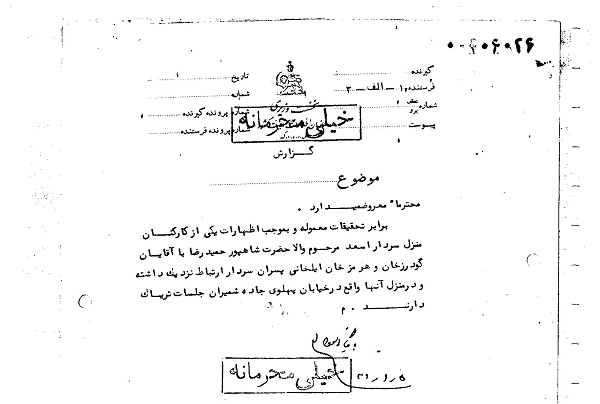 ۰-۴۰۶۰۲۶
گیرنده
تاریخ
فرستنده ۱۰ - الف - ۳
شماره
نخست وزیری
شماره
پیوست
شماره پرونده گیرنده
شماره پرونده فرستنده
خیلی محرمانه
گزارش
موضوع
محترما" معروضمیدارد .
برابر تحقیقات معموله و بموجب اظهارات یکی از کارکنان
منزل سردار اسعد مرحوم والا حضرت شاهپور حمید رضا با آقایان
گودرزخان و هرمز خان ایلخانی پسران سردار ارتباط نزدیک داشته
و درمنزل آنها واقع درخیابان پهلوی جاده شمیران جلسات تریاک
دارند . م
خیلی محرمانه